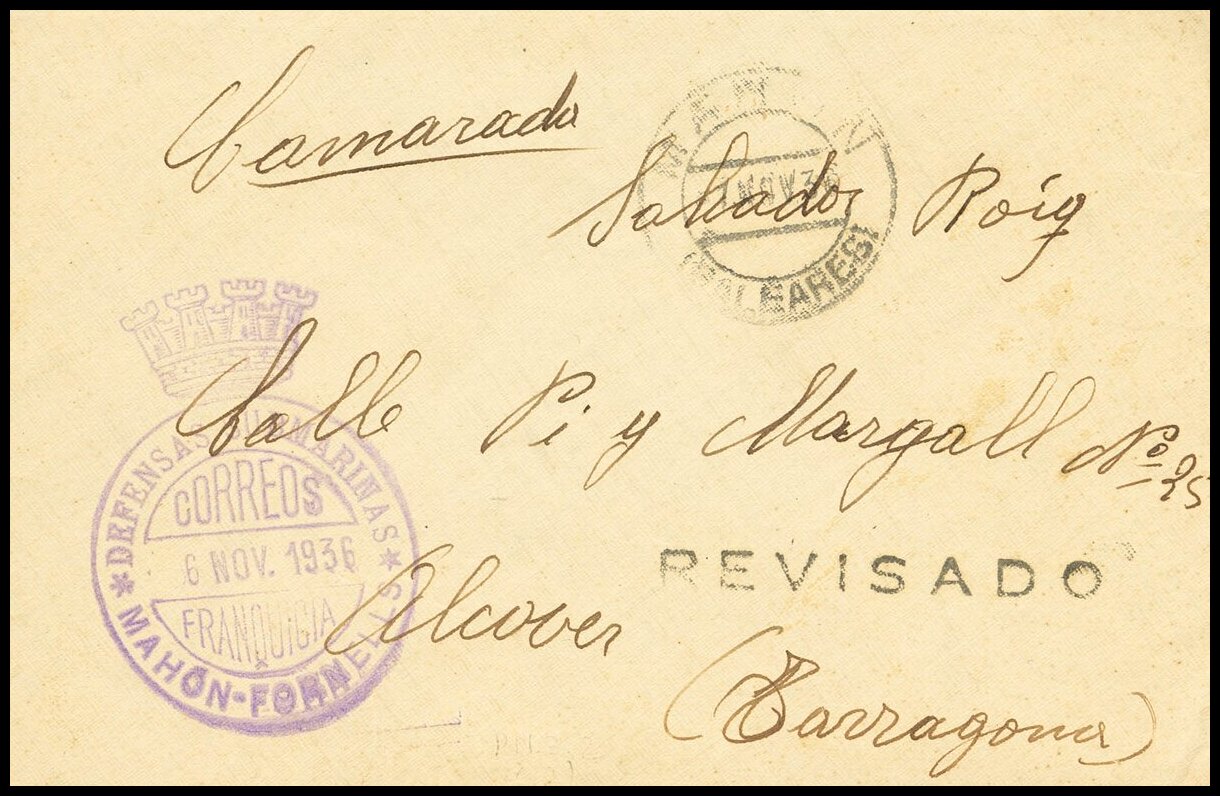 Camarada
Salvador Roig
MAHON
7 NOV 36
(BALEARES)
Calle Pi y Margall Nº 25
DEFENSAS SUBMARINAS
CORREOS
6 NOV. 1936
FRANQUICIA
MAHÓN-FORNELLS
REVISADO
Alcover
(Tarragona)